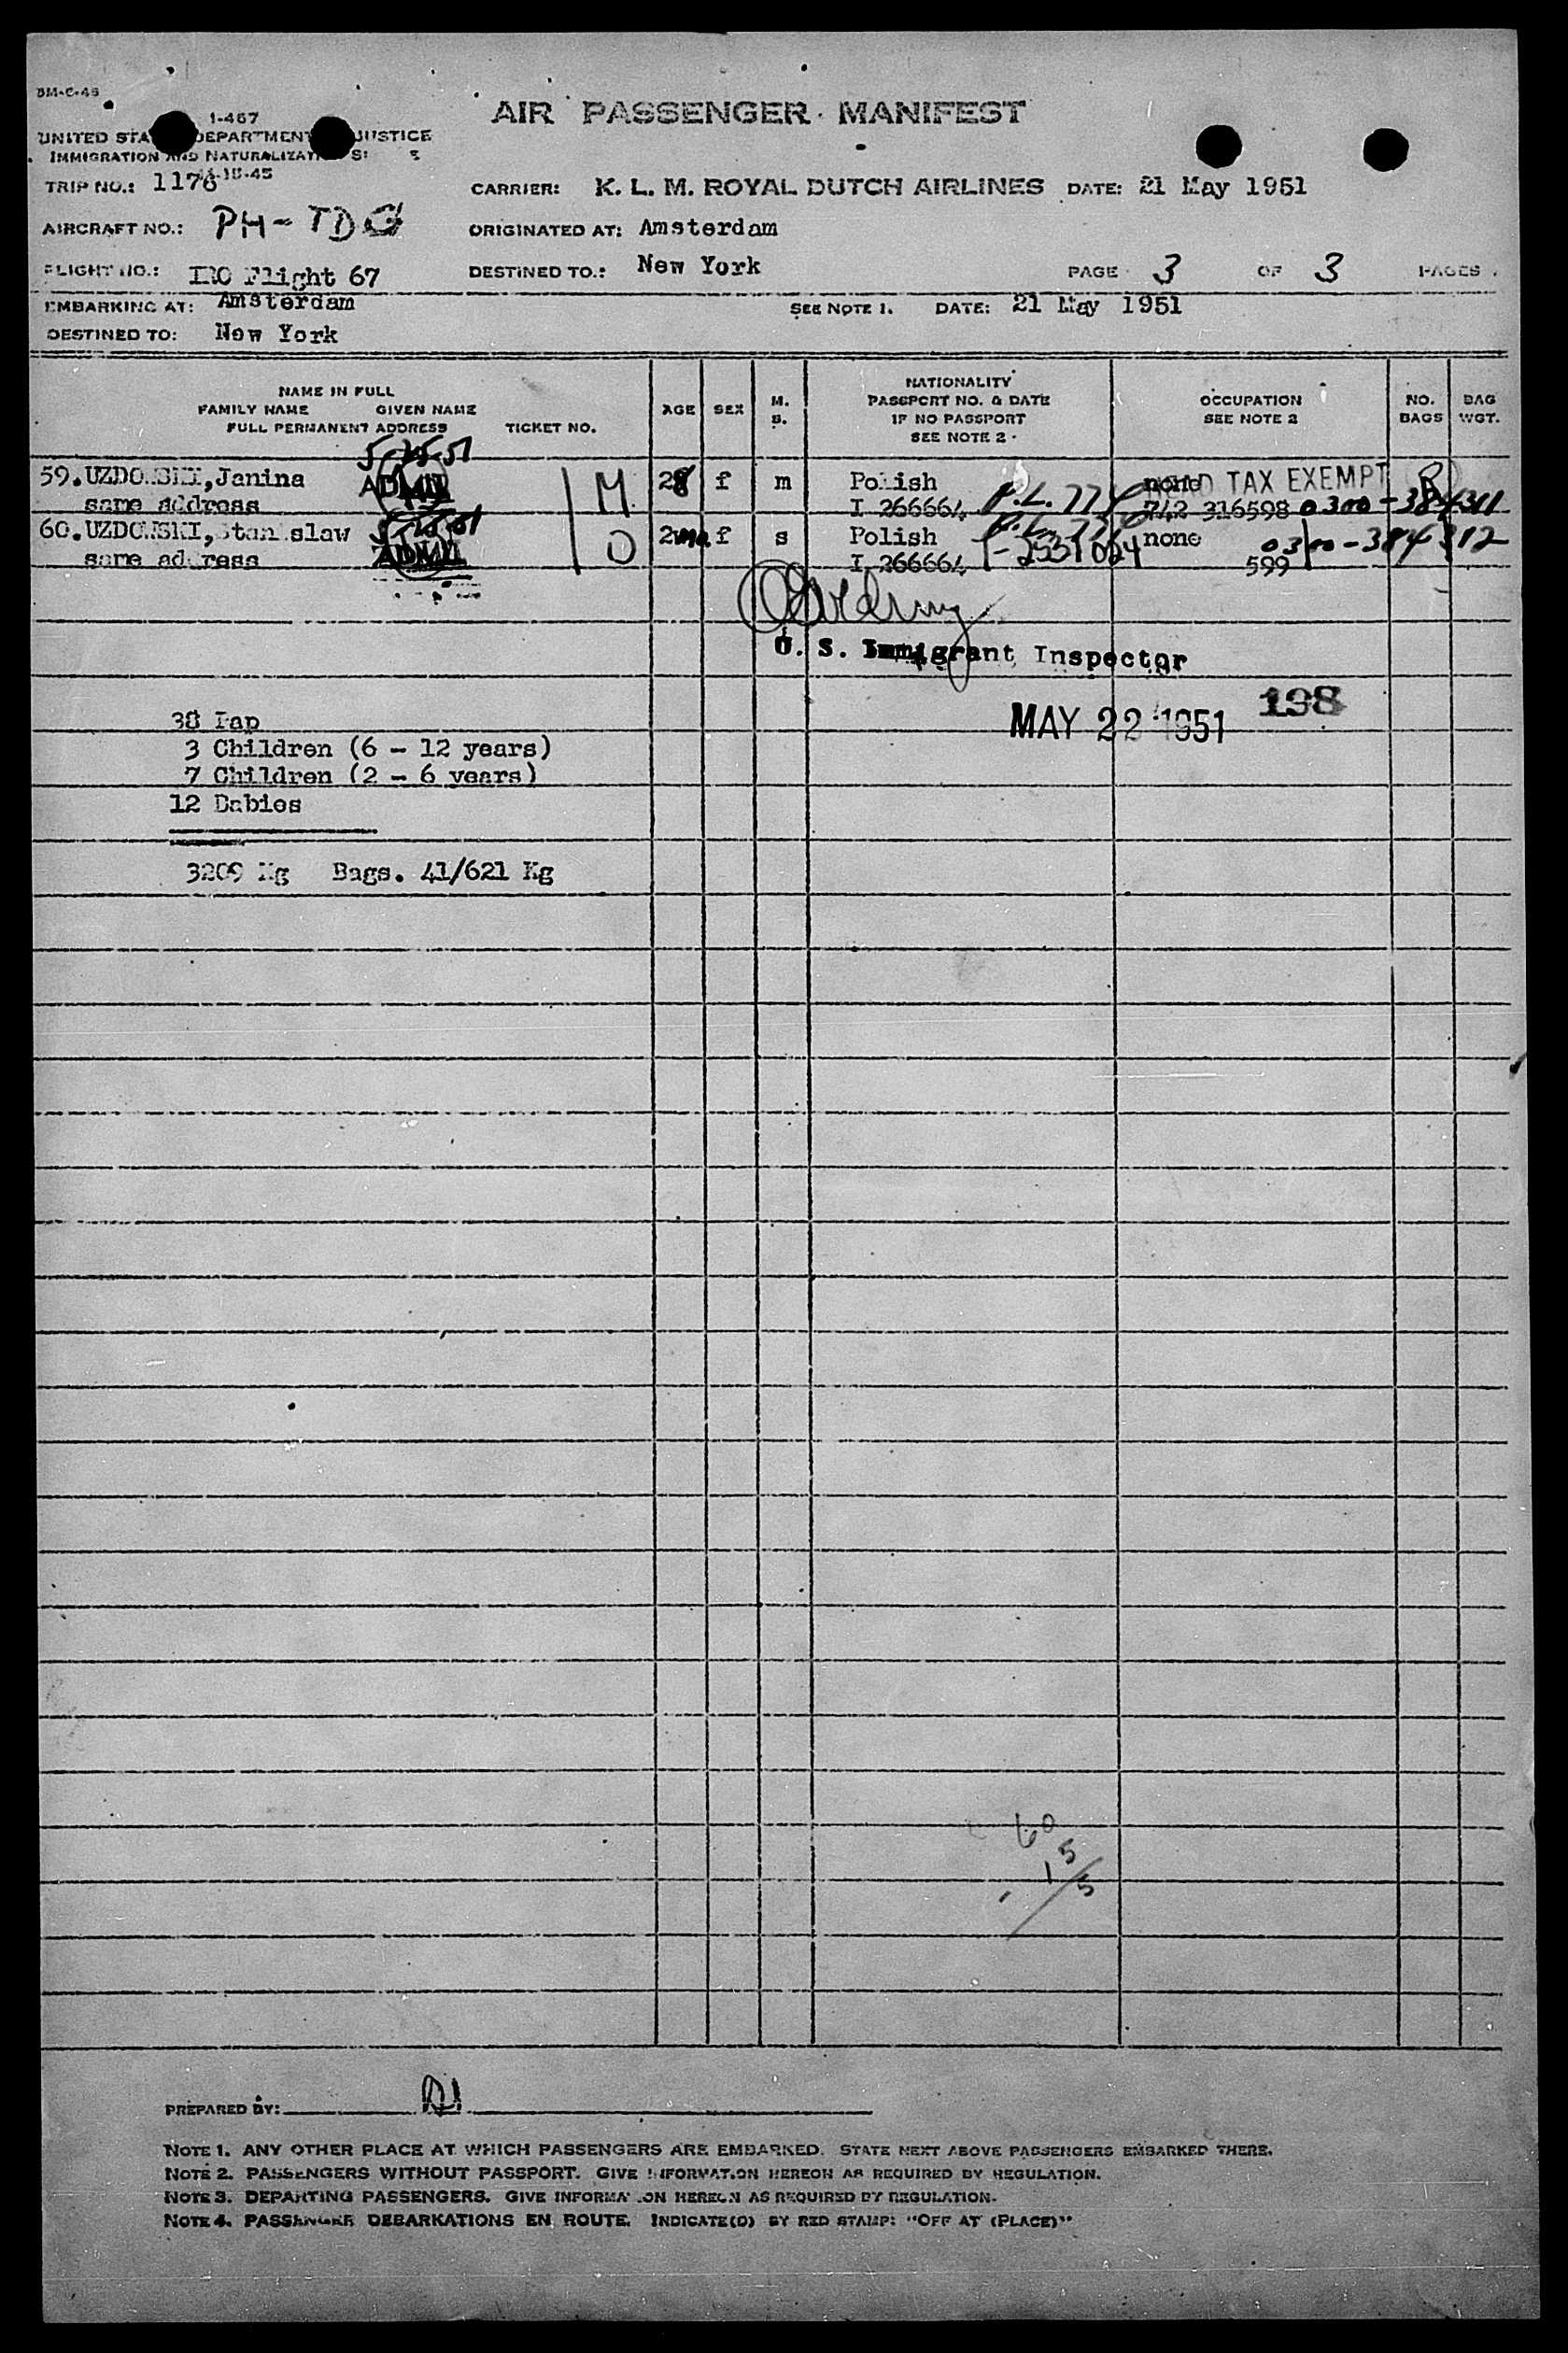 BM-C-45
AIR PASSENGER MANIFEST
1-467
UNITED DEPARTMENT JUSTICE
IMMIGRATION AND
TRIP NO.: 1176 CARRIER: K. L. M. ROYAL DUTCH AIRLINES DATE: 21 May 1951
AIRCRAFT NO.: PH-TDG ORIGINATED AT: Amsterdam
FLIGHT NO.: IRO Flight 67 DESTINED TO.: New York PAGE 3 OF 3 PAGES
EMBARKING AT: Amsterdam SEE NOTE 1. DATE: 21 May 1951
DESTINED TO: New York
NAME IN FULL
FAMILY NAME GIVEN NAME
FULL PERMANENT ADDRESS TICKET NO.
AGE SEX M. S.
NATIONALITY
PASSPORT NO. & DATE
IF NO PASSPORT
SEE NOTE 2
OCCUPATION
SEE NOTE 2
NO. BAGS
BAG WGT.
5-25-51
59. UZDOWSKI, Janina ADMIT M 28 f m Polish none HEAD TAX EXEMPT
same address I 266664 P.L. 774 742 316598 0300-384311
60. UZDOWSKI, Stanislaw ADMIT O 2 mo f s Polish P.L. 774 none 0300-384312
same address I 266664 599
U. S. Immigrant Inspector
198
MAY 22 1951
38 Pap
3 Children (6 - 12 years)
7 Children (2 - 6 years)
12 Babies
3209 Kg Bags. 41/621 Kg
60
15
5
PREPARED BY:
NOTE 1. ANY OTHER PLACE AT WHICH PASSENGERS ARE EMBARKED. STATE NEXT ABOVE PASSENGERS EMBARKED THERE.
NOTE 2. PASSENGERS WITHOUT PASSPORT. GIVE INFORMATION HEREON AS REQUIRED BY REGULATION.
NOTE 3. DEPARTING PASSENGERS. GIVE INFORMATION HEREON AS REQUIRED BY REGULATION.
NOTE 4. PASSENGER DEBARKATIONS EN ROUTE. INDICATE(D) BY RED STAMP: "OFF AT (PLACE)"